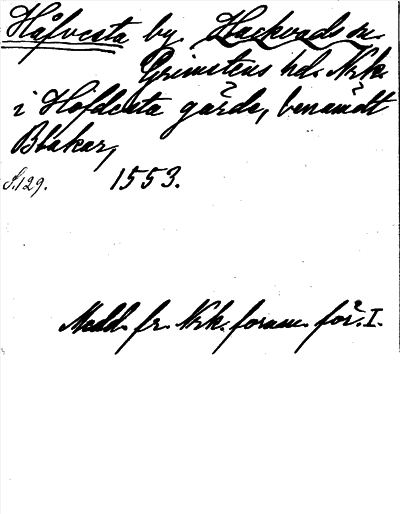 Håfvesta by. Hackvads sn.
Grimstens hd. Nrk.
i Höfdesta gärde, benämdt
Blåkar,
S. 129. 1553.
Medd. fr. Nrk. fornm. för. I.